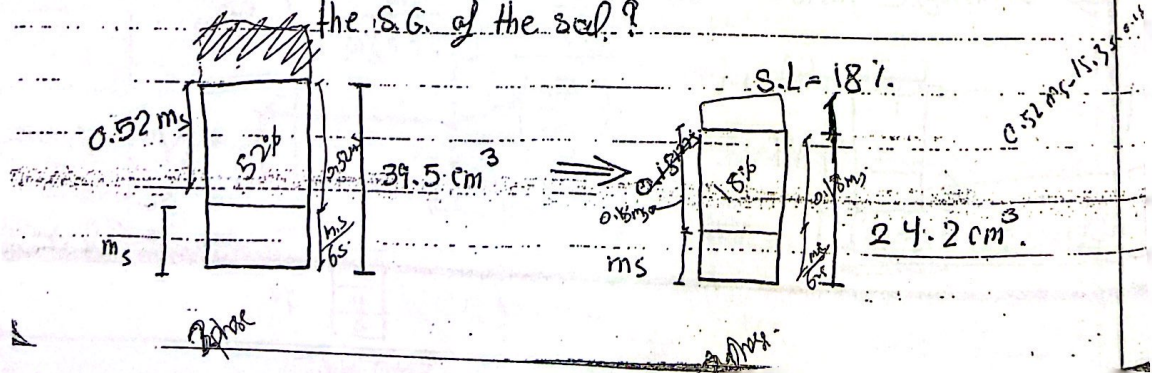 the S.G. of the soil?
S.L = 18 %.
0.52 ms
52%
0.52ms
39.5 cm³
ms
ms/Gs
0.18ms
18%
0.18ms
24.2 cm³.
ms
ms/Gs
0.52 ms-15.3
3 phase